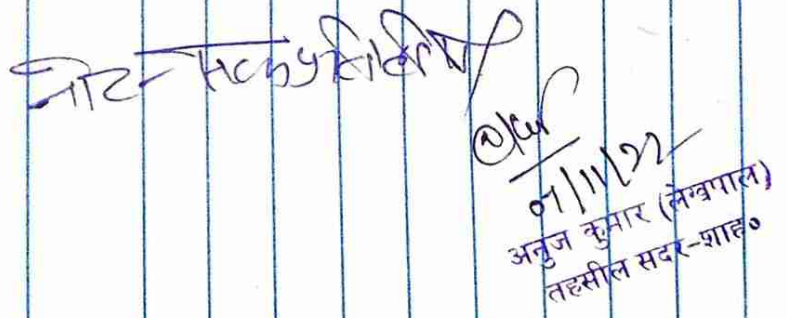 नोट- सत्यप्रतिलिपि
01/11/22
अनुज कुमार (लेखपाल)
तहसील सदर-शाह०